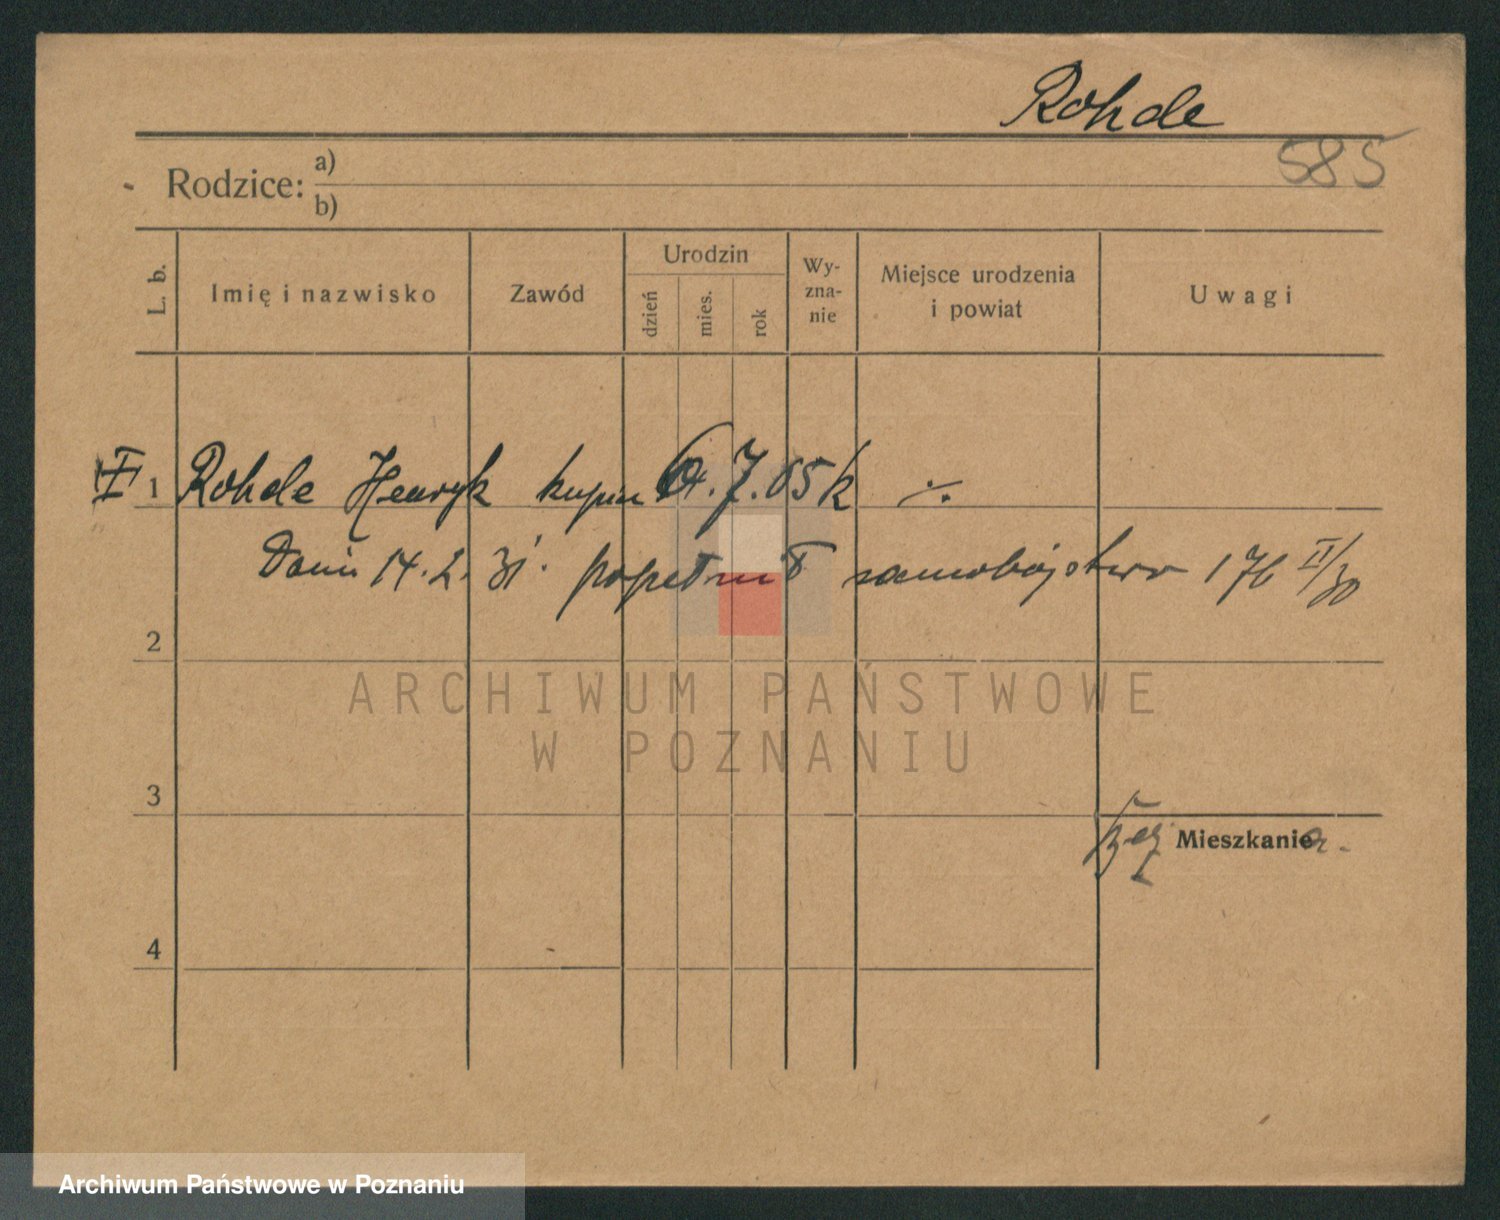 Rohde
585
Rodzice: a)
b)
L. b. Imię i nazwisko Zawód Urodzin dzień mies. rok Wy-zna-nie Miejsce urodzenia i powiat Uwagi
1 Rohde Henryk kupiec 7. 05 k ·/·
Dnia 14. 2. 31. popełnił samobójstwo 176 II/30
2
ARCHIWUM PAŃSTWOWE
W POZNANIU
3
Mieszkanie
4
Archiwum Państwowe w Poznaniu